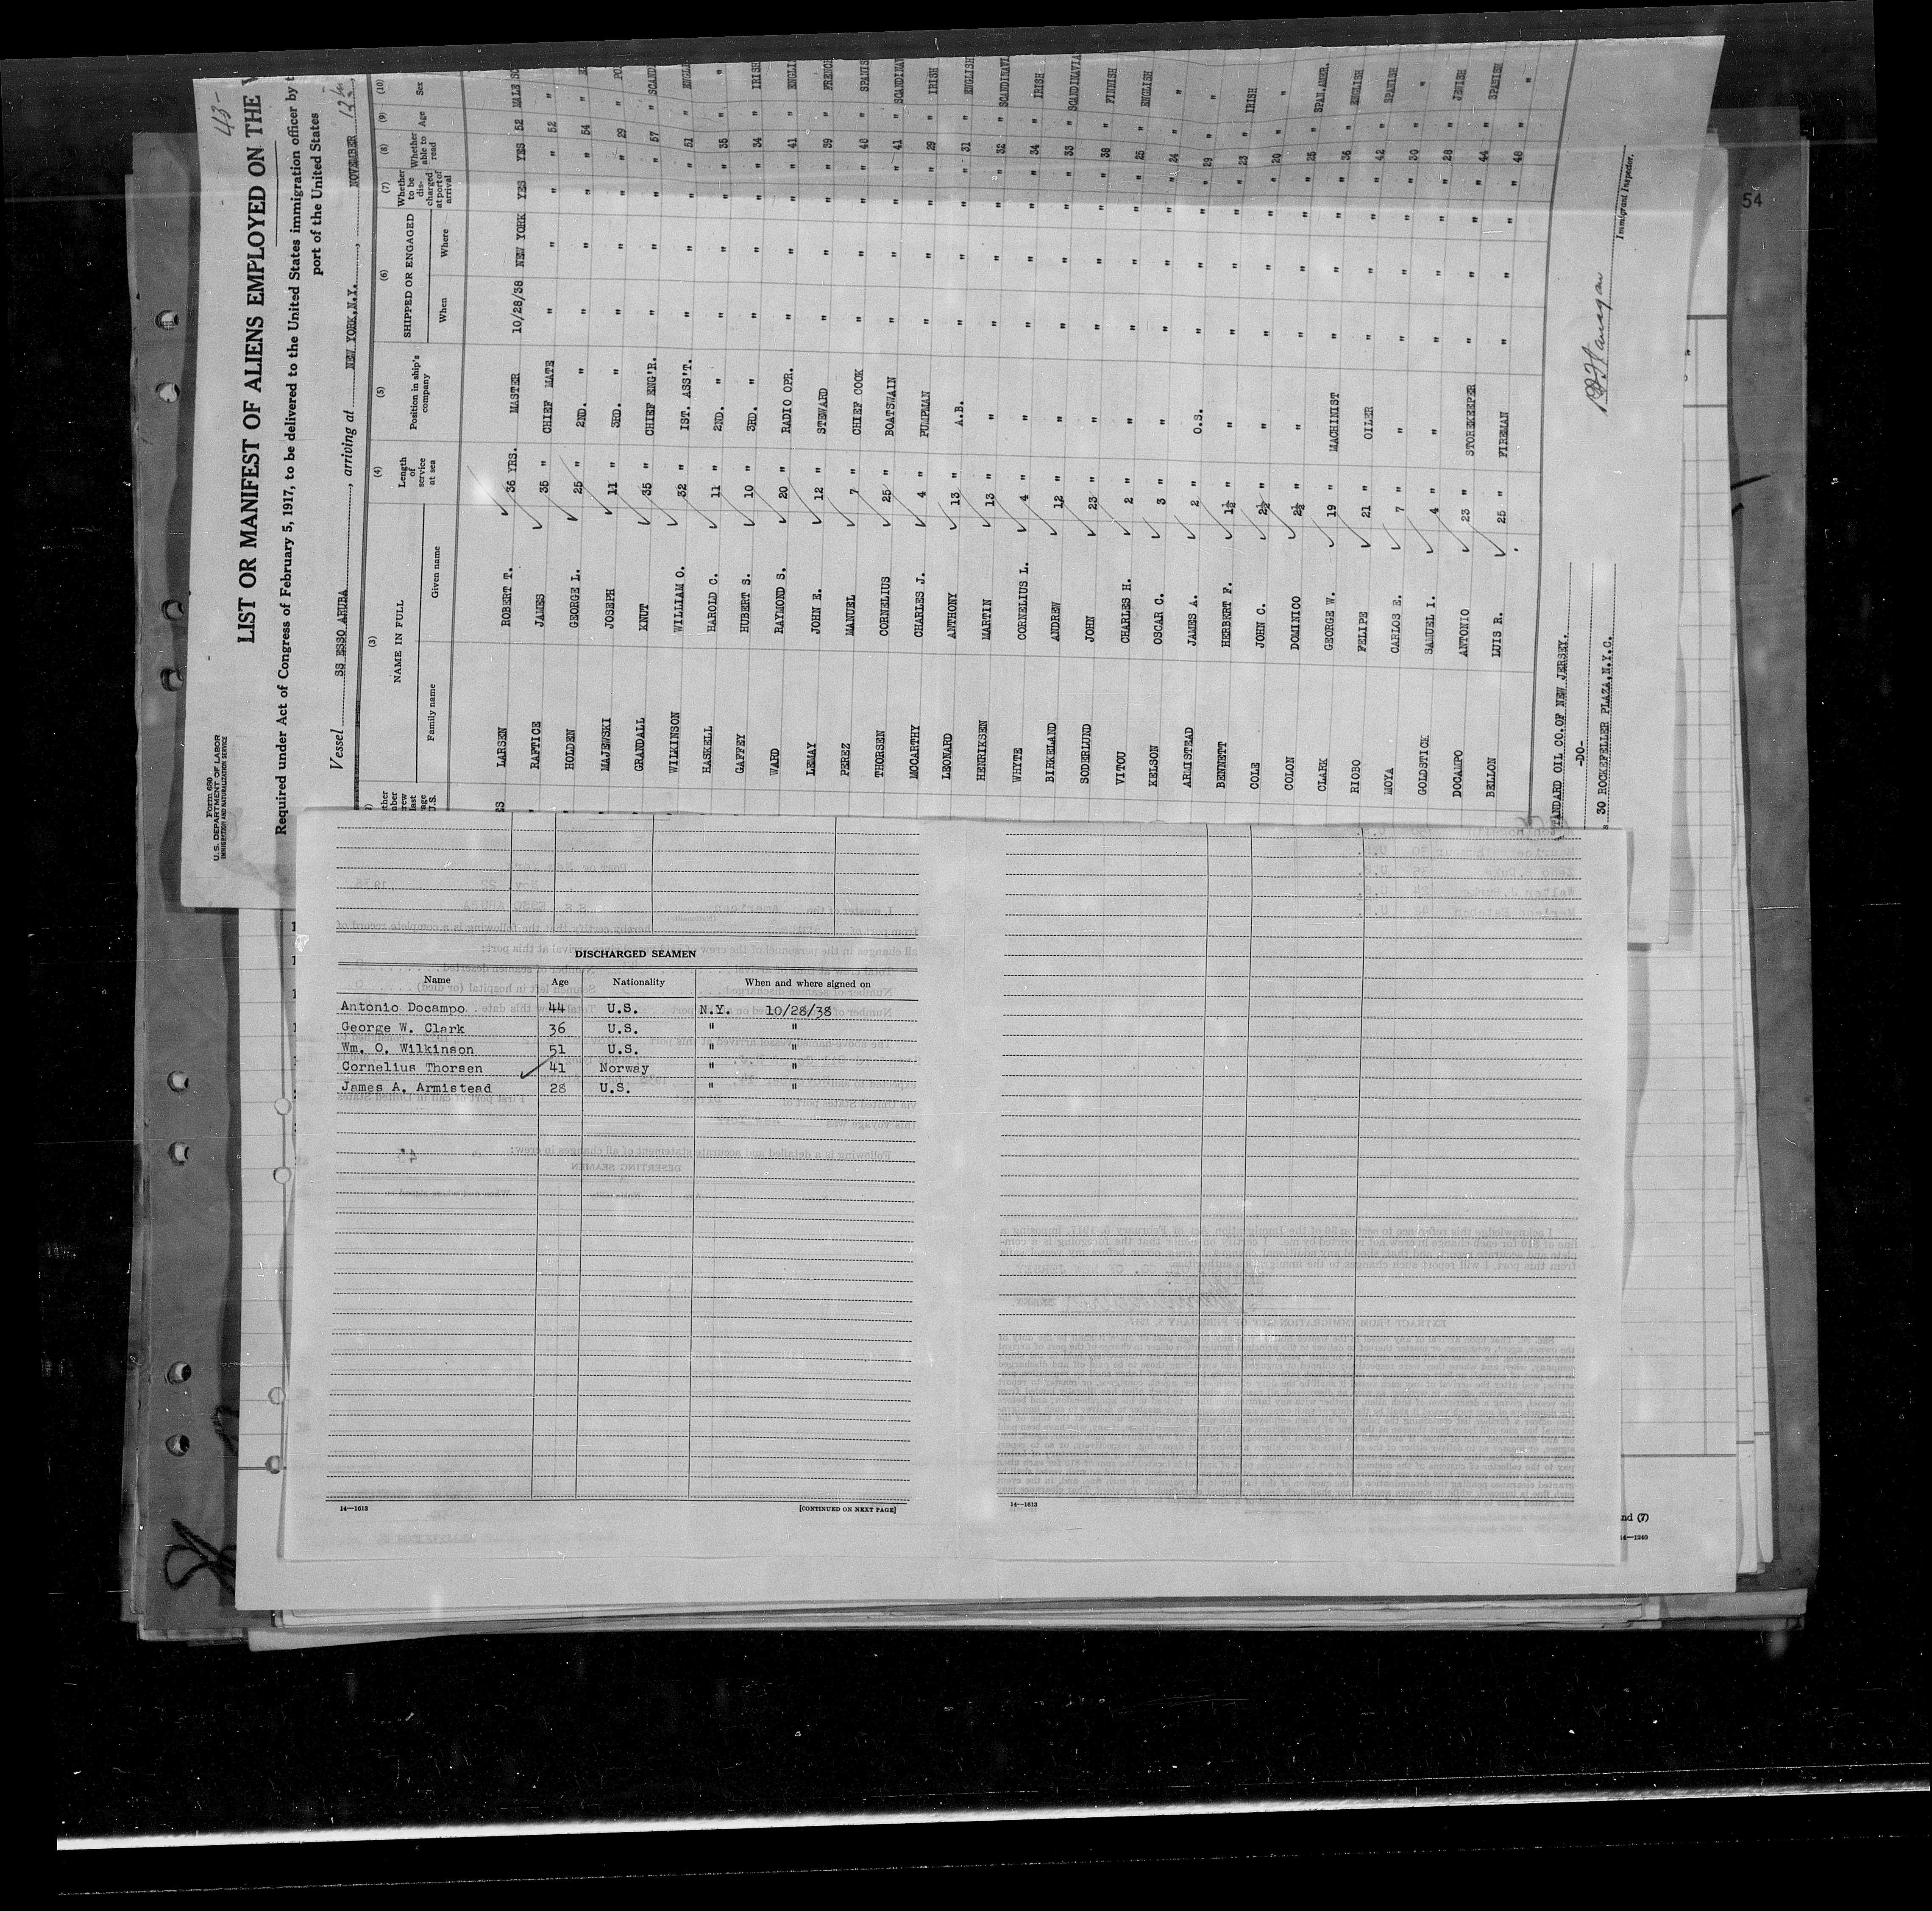 43-
Form 680
U. S. DEPARTMENT OF LABOR
IMMIGRATION AND NATURALIZATION SERVICE
LIST OR MANIFEST OF ALIENS EMPLOYED ON THE
Required under Act of Congress of February 5, 1917, to be delivered to the United States immigration officer by
port of the United States
Vessel SS ESSO ARUBA, arriving at NEW YORK,N.Y., NOVEMBER 12th
(3) (4) (5) (6) (7) (8) (9) (10)
NAME IN FULL Length of service at sea Position in ship's company SHIPPED OR ENGAGED Whether to be discharged at port of arrival Whether able to read Age Sex
Family name Given name When Where
LARSEN ROBERT T. 36 YRS. MASTER 10/28/38 NEW YORK YES YES 52 MALE SC
RAFTICE JAMES 35 " CHIEF MATE " " " " 52 "
HOLDEN GEORGE L. 25 " 2ND. " " " " " 54 "
MAJEWSKI JOSEPH 11 " 3RD. " " " " " 29 " PO
GRANDALL KNUT 35 " CHIEF ENG'R. " " " " 57 " SCAND
WILKINSON WILLIAM O. 32 " 1ST. ASS'T. " " " " 51 " ENGLI
HASKELL HAROLD C. 11 " 2ND. " " " " " 35 " "
GAFFEY HUBERT S. 10 " 3RD. " " " " " 34 " IRISH
WARD RAYMOND S. 20 " RADIO OPR. " " " " 41 " ENGLI
LEMAY JOHN E. 12 " STEWARD " " " " 39 " FRENCH
PEREZ MANUEL 7 " CHIEF COOK " " " " 48 " SPANIS
THORSEN CORNELIUS 25 " BOATSWAIN " " " " 41 " SCANDINAV
MCCARTHY CHARLES J. 4 " PUMPMAN " " " " 29 " IRISH
LEONARD ANTHONY 13 " A.B. " " " " 31 " ENGLISH
HENRIKSEN MARTIN 13 " " " " " " 32 " SCANDINAVI
WHYTE CORNELIUS L. 4 " " " " " " 34 " IRISH
BIRKELAND ANDREW 12 " " " " " " 33 " SCANDINAVIA
SODERLUND JOHN 23 " " " " " " 38 " FINNISH
VITOU CHARLES H. 2 " " " " " " 25 " ENGLISH
KELSON OSCAR C. 3 " " " " " " 24 " "
ARMISTEAD JAMES A. 2 " O.S. " " " " 29 " "
BENNETT HERBERT F. 1½ " " " " " " 23 " IRISH
COLE JOHN C. 2½ " " " " " " 20 " "
COLON DOMINICO 2½ " " " " " " 25 " SPAN.AMER.
CLARK GEORGE W. 19 " MACHINIST " " " " 36 " ENGLISH
RIOBO FELIPE 21 " OILER " " " " 42 " SPANISH
MOYA CARLOS E. 7 " " " " " " 30 " "
GOLDSTICK SAMUEL I. 4 " " " " " " 28 " JEWISH
DOCAMPO ANTONIO 23 " STOREKEEPER " " " " 44 " SPANISH
BELLON LUIS R. 25 " FIREMAN " " " " 48 " "
STANDARD OIL CO.OF NEW JERSEY.
-DO-
30 ROCKEFELLER PLAZA,N.Y.C.
Immigrant Inspector.
54
DISCHARGED SEAMEN
Name Age Nationality When and where signed on
Antonio Docampo 44 U.S. N.Y. 10/28/38
George W. Clark 36 U.S. " "
Wm. O. Wilkinson 51 U.S. " "
Cornelius Thorsen 41 Norway " "
James A. Armistead 28 U.S. " "
14—1613 [CONTINUED ON NEXT PAGE]
14—1613
nd (7)
14—1240